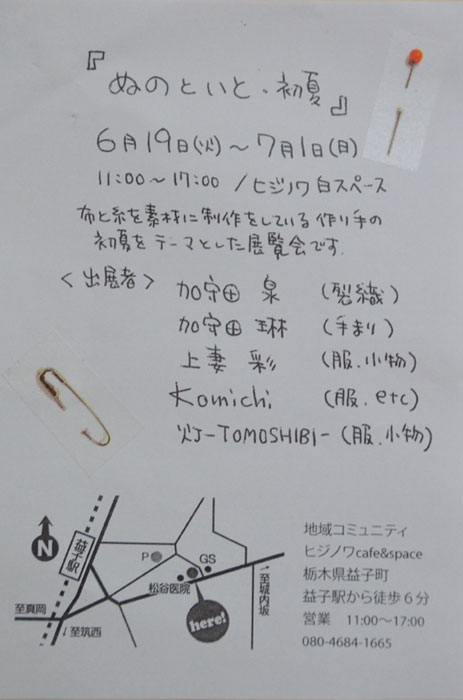 『ぬのといと、初夏』
6月19日(火)～7月1日(日)
11:00～17:00 / ヒジノワ 白スペース
布と糸を素材に制作をしている作り手の
初夏をテーマとした展覧会です.
＜出展者＞ 加守田 泉 (裂織)
加守田 琳 (手まり)
上妻 彩 (服.小物)
Komichi (服.etc)
灯-TOMOSHIBI- (服.小物)
N
益子駅
P
GS
松谷医院
here!
至真岡
↓至筑西
→至城内坂
地域コミュニティ
ヒジノワcafe&space
栃木県益子町
益子駅から徒歩６分
営業 11:00〜17:00
080-4684-1665